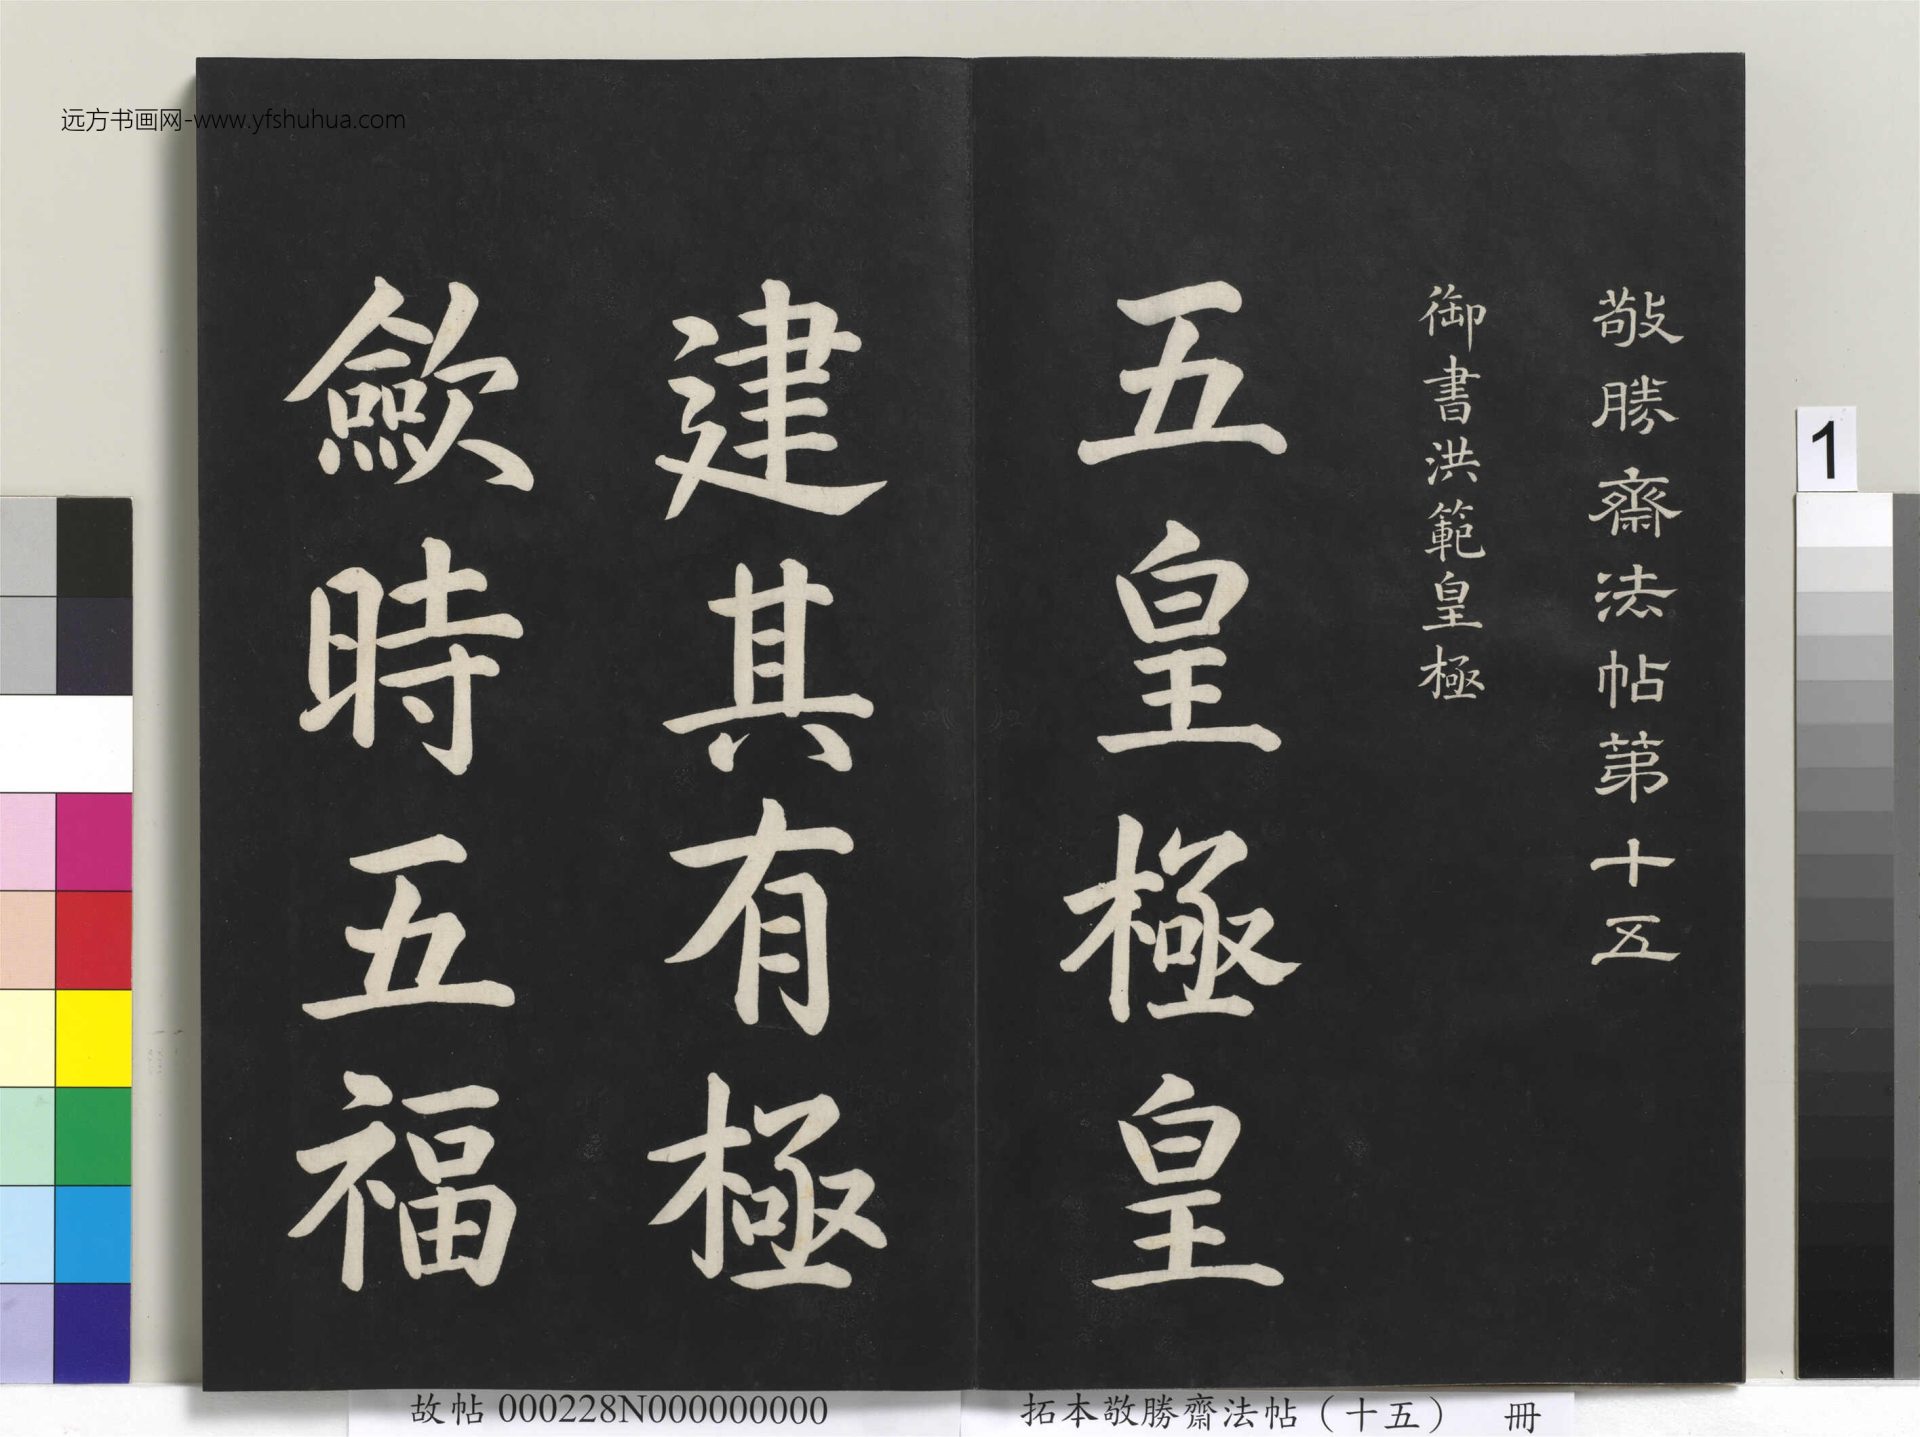 远方书画网-www.yfshuhua.com
敬勝齋法帖第十五
御書洪範皇極
五皇極皇
建其有極
歛時五福
1
故帖 000228N000000000
拓本敬勝齋法帖（十五） 冊